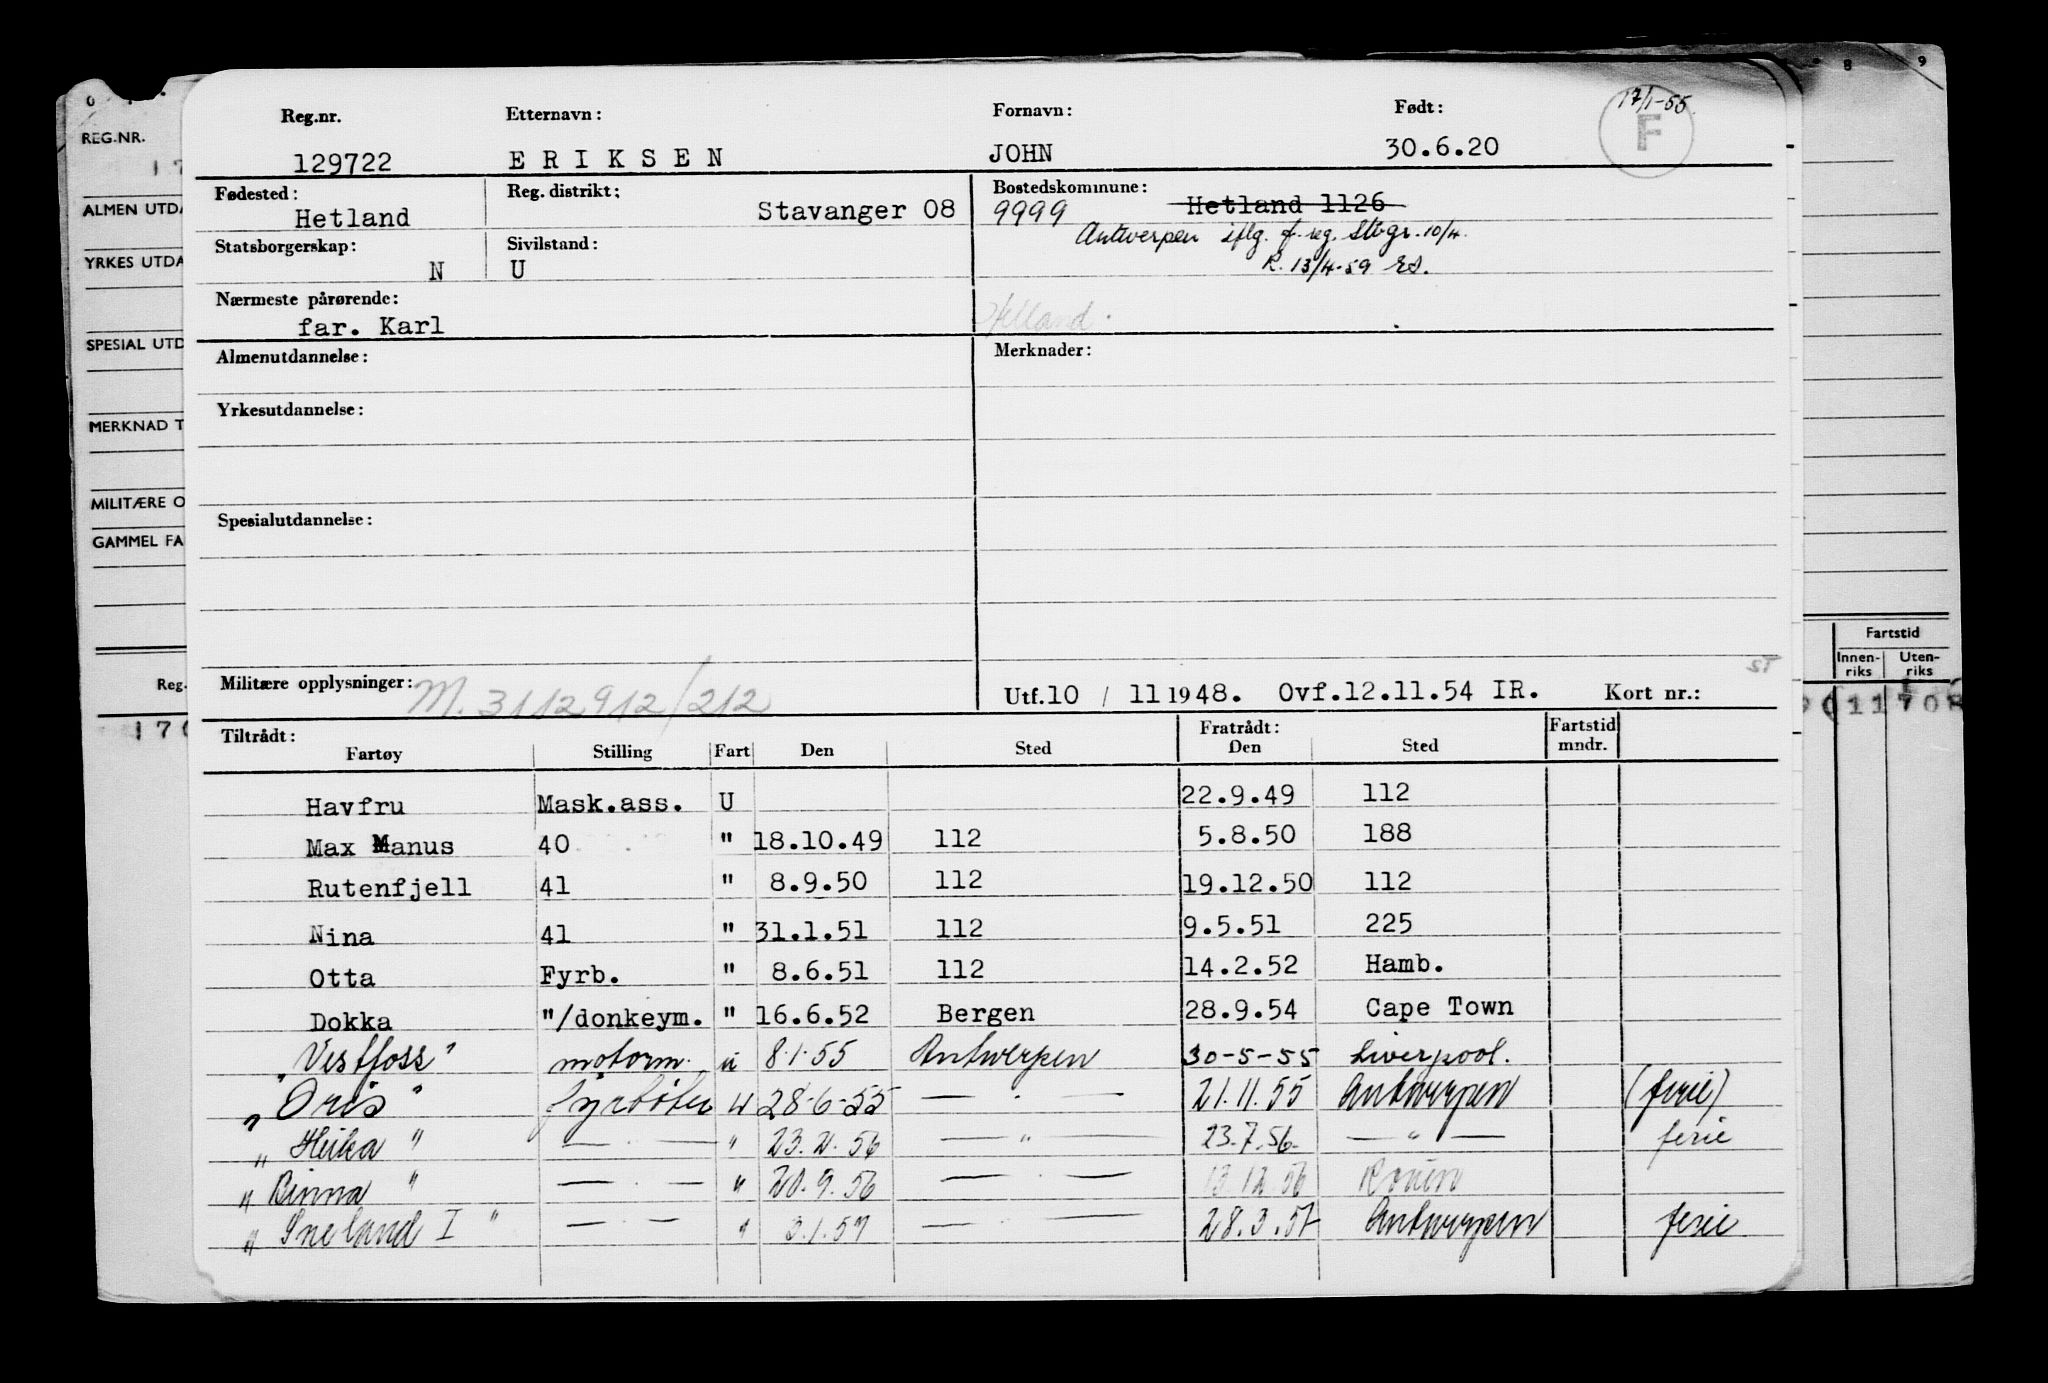 17/1-55
F
Reg.nr. Etternavn: Fornavn: Født:
129722 ERIKSEN JOHN 30.6.20
Fødested: Reg. distrikt: Bostedskommune:
Hetland Stavanger 08 9999 Hetland 1126
Antwerpen iflg. f. reg. Stvgr. 10/4.
Statsborgerskap: Sivilstand:
N U R. 13/4-59
Nærmeste pårørende:
far. Karl Hetland.
Almenutdannelse: Merknader:
Yrkesutdannelse:
Spesialutdannelse:
ST
Militære opplysninger: M. 3112912/212 Utf.10 / 11 1948. Ovf.12.11.54 IR. Kort nr.:
Tiltrådt: Fratrådt: Fartstid
Fartøy Stilling Fart Den Sted Den Sted mndr.
Havfru Mask.ass. U 22.9.49 112
Max Manus 40 " 18.10.49 112 5.8.50 188
Rutenfjell 41 " 8.9.50 112 19.12.50 112
Nina 41 " 31.1.51 112 9.5.51 225
Otta Fyrb. " 8.6.51 112 14.2.52 Hamb.
Dokka "/donkeym. " 16.6.52 Bergen 28.9.54 Cape Town
"Vestfoss" motorm. u 8.1.55 Antwerpen 30-5-55 Liverpool.
"Oris" fyrbøter u 28-6-55 — . — 21.11.55 Antwerpen (ferie)
"Heika" — . — " 23.2.56 — " — 23.7.56 — " — ferie
"Binna" — . — " 20.9.56 — . — 13.12.56 Rouen
"Sneland I" — . — " 3.1.57 — . — 28.3.57 Antwerpen ferie
REG.NR.
ALMEN UTDA
YRKES UTDA
SPESIAL UTD
MERKNAD T
MILITÆRE O
GAMMEL FA
Reg.
170
8 9
Fartstid
Innen-riks Uten-riks
11708